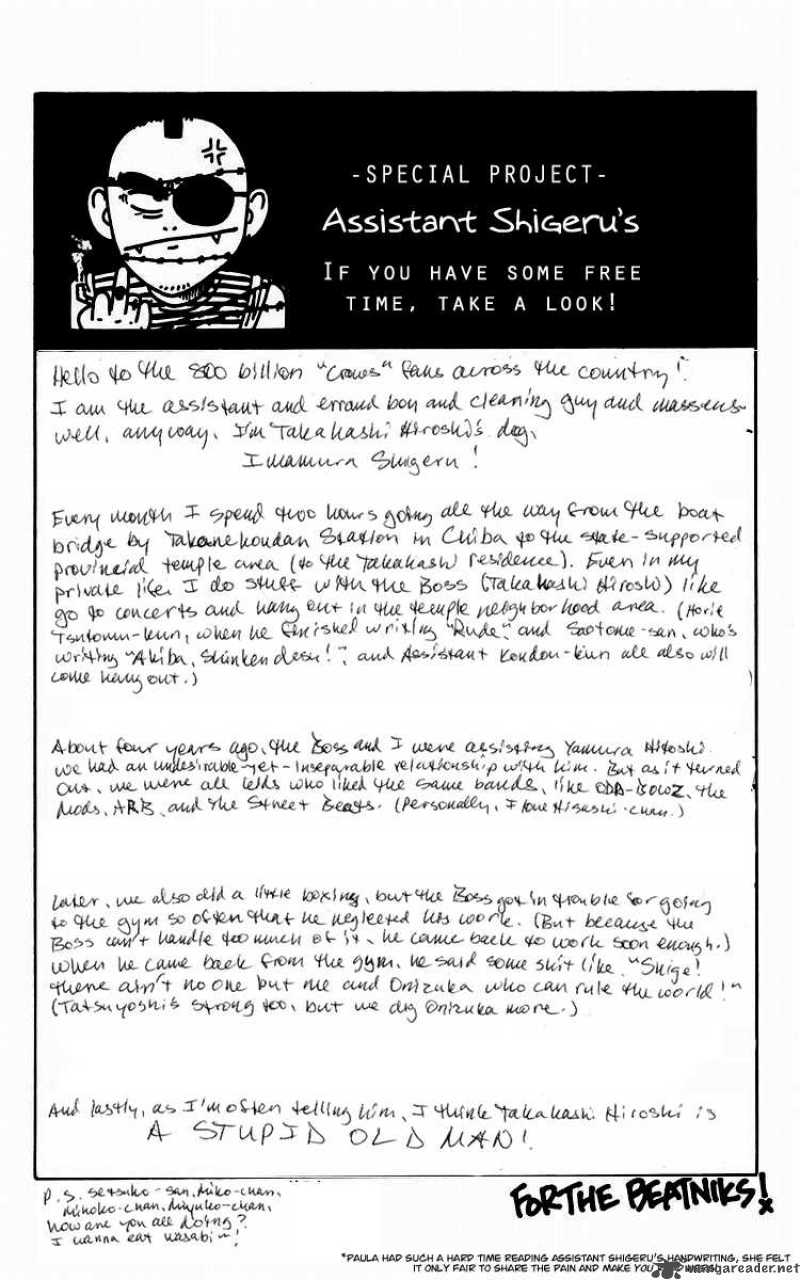 -SPECIAL PROJECT-
Assistant Shigeru's
IF YOU HAVE SOME FREE
TIME, TAKE A LOOK!
Hello to the 800 billion "Crows" fans across the country!
I am the assistant and errand boy and cleaning guy and
well, anyway. I'm Takahashi Hiroshi's dog,
Imamura Shigeru!
Every month I spend two hours going all the way from the boat
bridge by Takanekoudan Station in Chiba to the state-supported
provincial temple area (to the Takahashi residence). Even in my
private life I do stuff with the Boss (Takahashi Hiroshi) like
go to concerts and hang out in the temple neighborhood area. (Horie
Tsutomu-kun, when he finished writing "Rude", and Saotome-san, who's
writing "Akiba, Shinken desu!", and Assistant Kondou-kun all also will
come hang out.)
About four years ago, the Boss and I were assisting Yamura Hitoshi.
We had an undesirable-yet-inseparable relationship with him. But as it turned
out, we were all kids who liked the same bands, like the
Mods, ARB, and the Street Beats. (Personally, I love Higashi-chan.)
Later, we also did a little boxing, but the Boss got in trouble for going
to the gym so often that he neglected his work. (But because the
Boss can't handle too much of it, he came back to work soon enough.)
When he came back from the gym, he said some shit like, "Shige!
There ain't no one but me and Onizuka who can rule the world!"
(Tatsuyoshi's strong too, but we dig Onizuka more.)
And lastly, as I'm often telling him, I think Takahashi Hiroshi is
A STUPID OLD MAN!
P.S. Setsuko-san, Miko-chan,
Mihoko-chan, Miyuko-chan,
how are you all doing?
I wanna eat wasabi~!
FOR THE BEATNIKS!
*PAULA HAD SUCH A HARD TIME READING ASSISTANT SHIGERU'S HANDWRITING, SHE FELT
IT ONLY FAIR TO SHARE THE PAIN AND MAKE YOU
mangareader.net